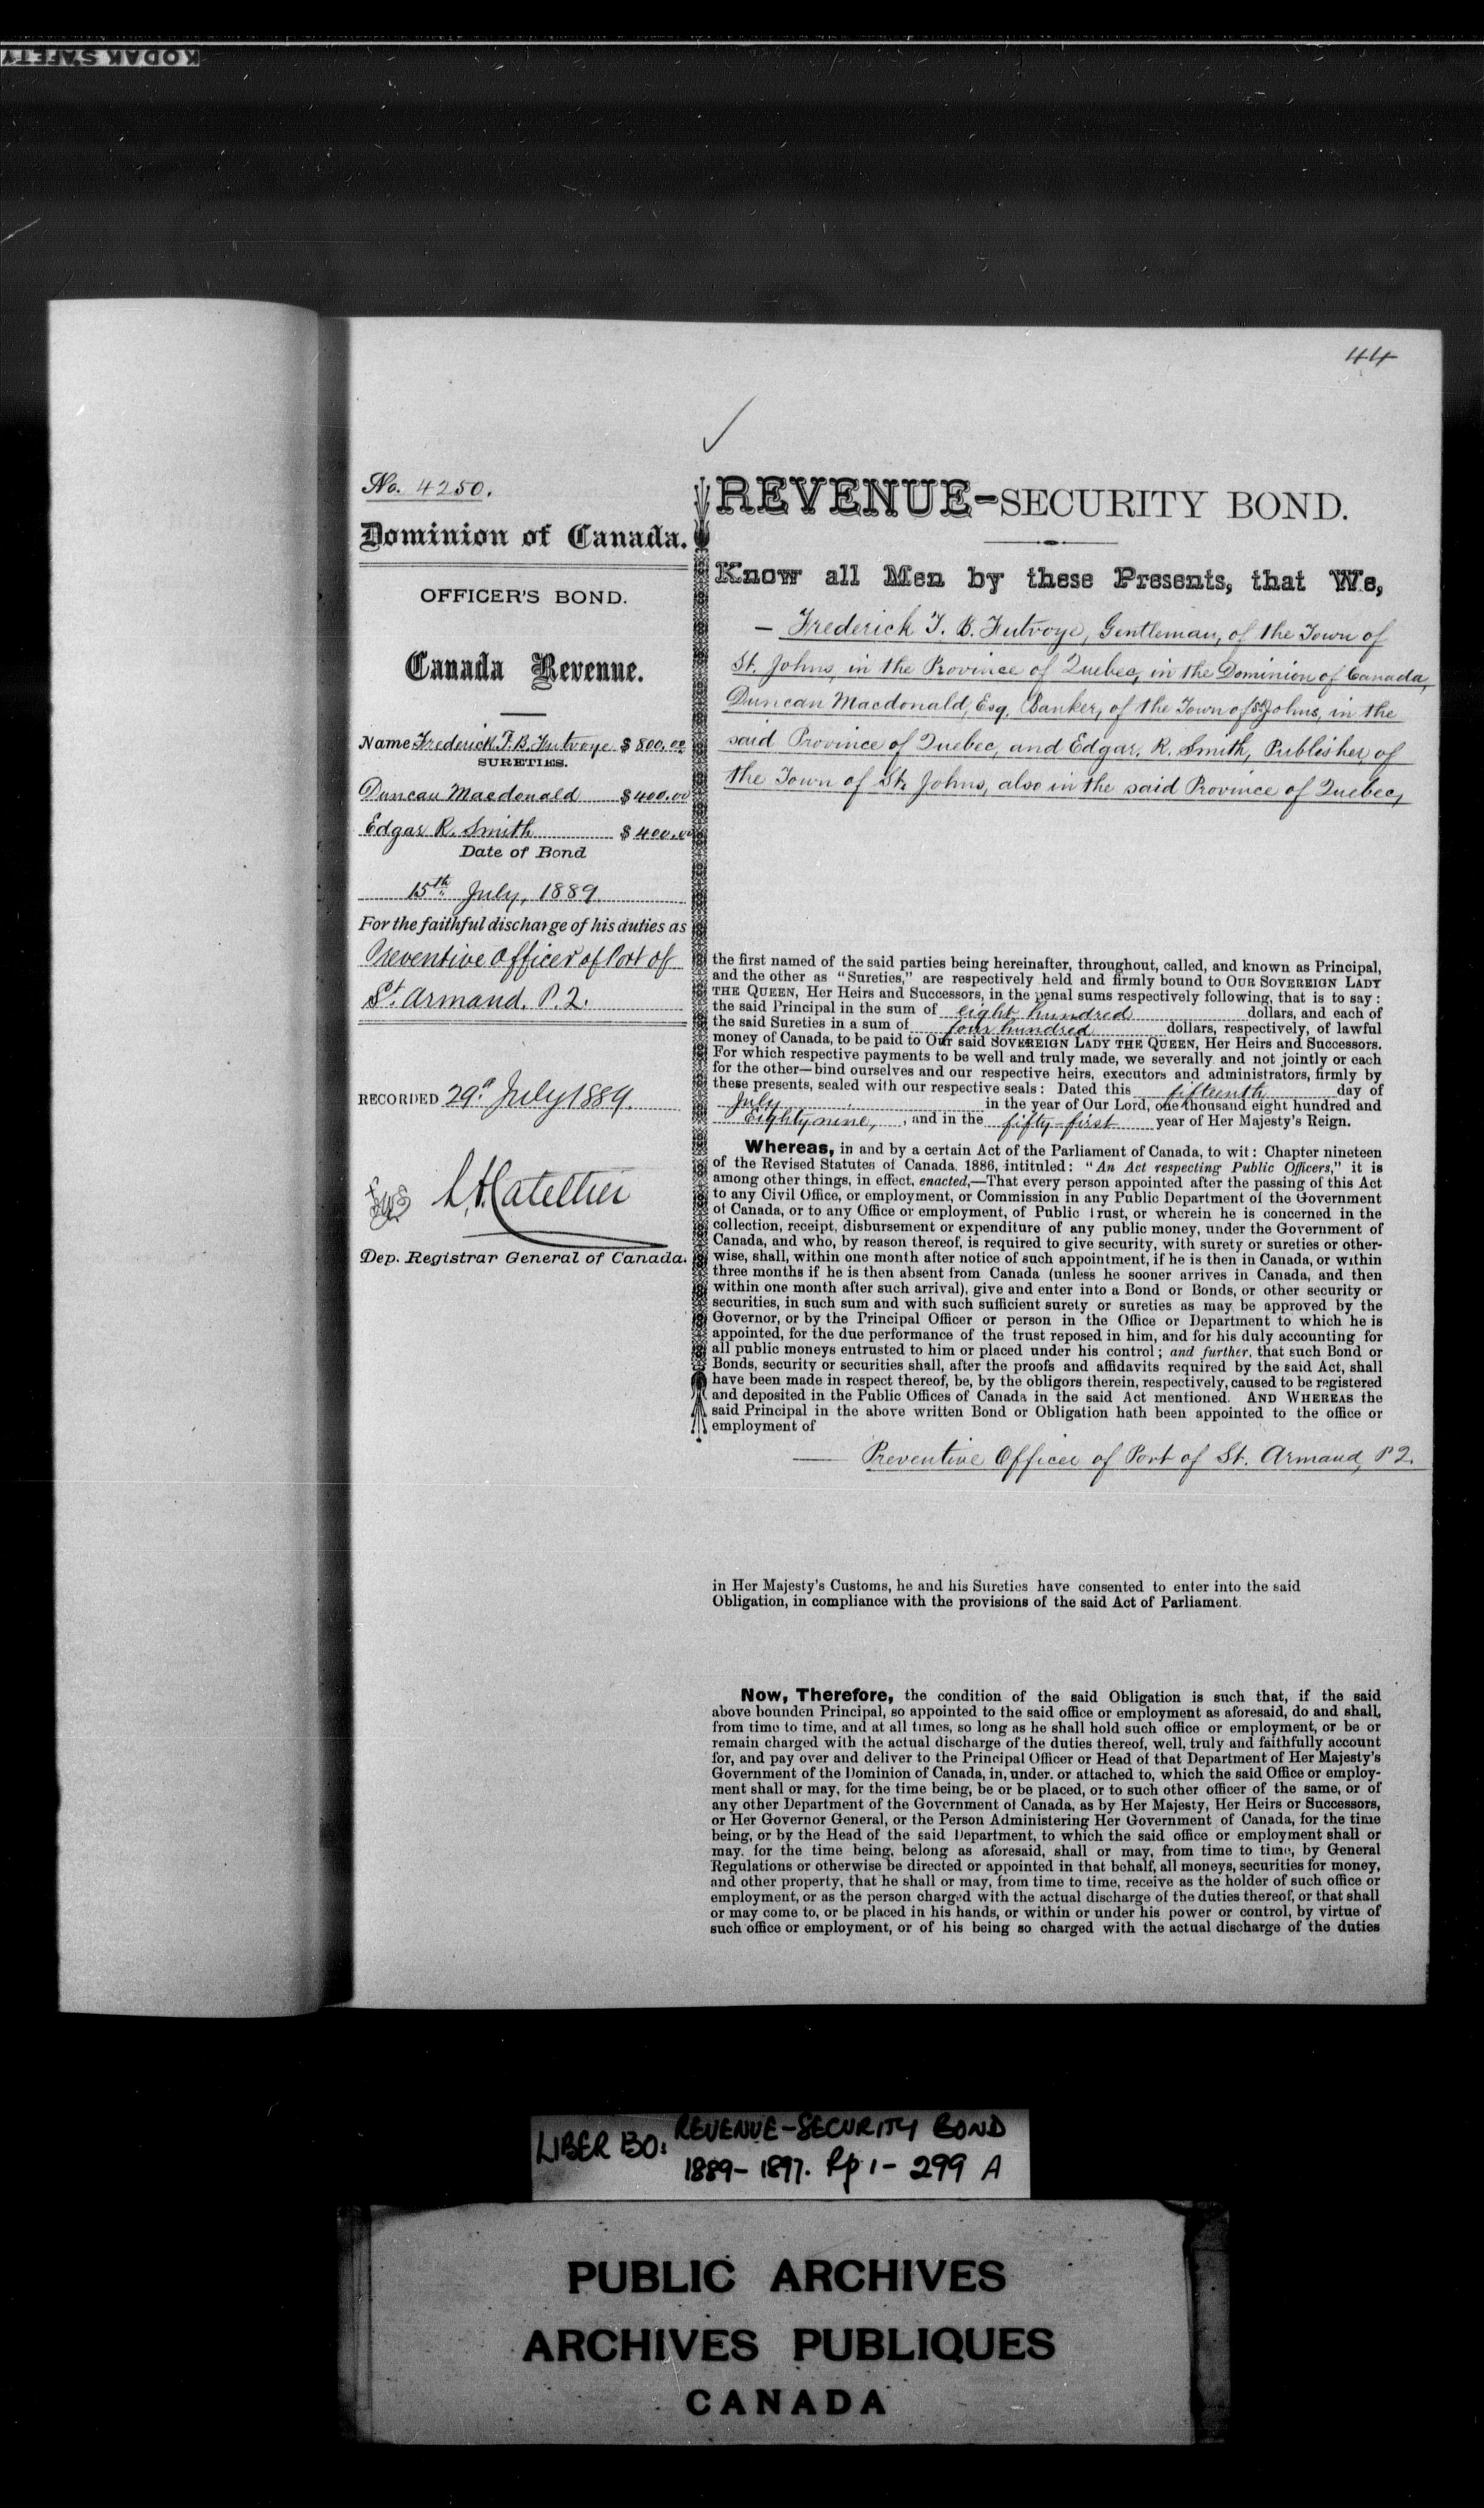 KODAK SAFETY
44
No. 4250.
Dominion of Canada.
OFFICER'S BOND.
Canada Revenue.
Name Frederick T. B. Futvoye $800.00
SURETIES.
Duncan Macdonald $400.00
Edgar R. Smith $400.00
Date of Bond
15th July, 1889.
For the faithful discharge of his duties as
Preventive Officer of Port of
St. Armand, P.Q.
RECORDED 29th July 1889.
Dep. Registrar General of Canada.
REVENUE-SECURITY BOND.
Know all Men by these Presents, that We,
— Frederick T. B. Futvoye, Gentleman, of the Town of
St. Johns, in the Province of Quebec, in the Dominion of Canada,
Duncan Macdonald, Esq. Banker, of the Town of St. Johns, in the
said Province of Quebec, and Edgar. R. Smith, Publisher, of
the Town of St. Johns, also in the said Province of Quebec,
the first named of the said parties being hereinafter, throughout, called, and known as Principal,
and the other as "Sureties," are respectively held and firmly bound to OUR SOVEREIGN LADY
THE QUEEN, Her Heirs and Successors, in the penal sums respectively following, that is to say:
the said Principal in the sum of eight hundred dollars, and each of
the said Sureties in a sum of four hundred dollars, respectively, of lawful
money of Canada, to be paid to Our said SOVEREIGN LADY THE QUEEN, Her Heirs and Successors.
For which respective payments to be well and truly made, we severally and not jointly or each
for the other—bind ourselves and our respective heirs, executors and administrators, firmly by
these presents, sealed with our respective seals: Dated this fifteenth day of
July in the year of Our Lord, one thousand eight hundred and
Eighty nine, , and in the fifty-first year of Her Majesty's Reign.
Whereas, in and by a certain Act of the Parliament of Canada, to wit: Chapter nineteen
of the Revised Statutes of Canada, 1886, intituled: "An Act respecting Public Officers," it is
among other things, in effect, enacted,—That every person appointed after the passing of this Act
to any Civil Office, or employment, or Commission in any Public Department of the Government
of Canada, or to any Office or employment, of Public Trust, or wherein he is concerned in the
collection, receipt, disbursement or expenditure of any public money, under the Government of
Canada, and who, by reason thereof, is required to give security, with surety or sureties or other-
wise, shall, within one month after notice of such appointment, if he is then in Canada, or within
three months if he is then absent from Canada (unless he sooner arrives in Canada, and then
within one month after such arrival), give and enter into a Bond or Bonds, or other security or
securities, in such sum and with such sufficient surety or sureties as may be approved by the
Governor, or by the Principal Officer or person in the Office or Department to which he is
appointed, for the due performance of the trust reposed in him, and for his duly accounting for
all public moneys entrusted to him or placed under his control; and further, that such Bond or
Bonds, security or securities shall, after the proofs and affidavits required by the said Act, shall
have been made in respect thereof, be, by the obligors therein, respectively, caused to be registered
and deposited in the Public Offices of Canada in the said Act mentioned. AND WHEREAS the
said Principal in the above written Bond or Obligation hath been appointed to the office or
employment of
— Preventive Officer of Port of St. Armand, P.Q.
in Her Majesty's Customs, he and his Sureties have consented to enter into the said
Obligation, in compliance with the provisions of the said Act of Parliament.
Now, Therefore, the condition of the said Obligation is such that, if the said
above bounden Principal, so appointed to the said office or employment as aforesaid, do and shall,
from time to time, and at all times, so long as he shall hold such office or employment, or be or
remain charged with the actual discharge of the duties thereof, well, truly and faithfully account
for, and pay over and deliver to the Principal Officer or Head of that Department of Her Majesty's
Government of the Dominion of Canada, in, under, or attached to, which the said Office or employ-
ment shall or may, for the time being, be or be placed, or to such other officer of the same, or of
any other Department of the Government of Canada, as by Her Majesty, Her Heirs or Successors,
or Her Governor General, or the Person Administering Her Government of Canada, for the time
being, or by the Head of the said Department, to which the said office or employment shall or
may, for the time being, belong as aforesaid, shall or may, from time to time, by General
Regulations or otherwise be directed or appointed in that behalf, all moneys, securities for money,
and other property, that he shall or may, from time to time, receive as the holder of such office or
employment, or as the person charged with the actual discharge of the duties thereof, or that shall
or may come to, or be placed in his hands, or within or under his power or control, by virtue of
such office or employment, or of his being so charged with the actual discharge of the duties
LIBER BO: REVENUE-SECURITY BOND
1889-1897. Pp 1-299 A
PUBLIC ARCHIVES
ARCHIVES PUBLIQUES
CANADA